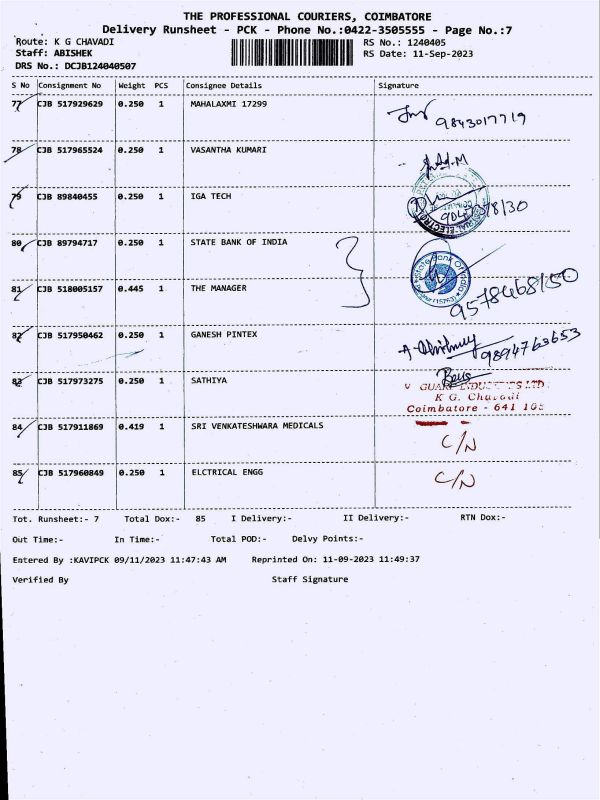 THE PROFESSIONAL COURIERS, COIMBATORE
Delivery Runsheet - PCK - Phone No.:0422-3505555 - Page No.:7
Route: K G CHAVADI RS No.: 1240405
Staff: ABISHEK RS Date: 11-Sep-2023
DRS No.: DCJB124040507
S No Consignment No Weight PCS Consignee Details Signature
77 CJB 517929629 0.250 1 MAHALAXMI 17299
9843017719
78 CJB 517965524 0.250 1 VASANTHA KUMARI
79 CJB 89840455 0.250 1 IGA TECH
80 CJB 89794717 0.250 1 STATE BANK OF INDIA
State Bank Of India
81 CJB 518005157 0.445 1 THE MANAGER
9578468150
82 CJB 517950462 0.250 1 GANESH PINTEX
9894763653
83 CJB 517973275 0.250 1 SATHIYA
K G. Chavadi
Coimbatore - 641 105
84 CJB 517911869 0.419 1 SRI VENKATESHWARA MEDICALS
C/N
85 CJB 517960849 0.250 1 ELCTRICAL ENGG C/N
Tot. Runsheet:- 7 Total Dox:- 85 I Delivery:- II Delivery:- RTN Dox:-
Out Time:- In Time:- Total POD:- Delvy Points:-
Entered By :KAVIPCK 09/11/2023 11:47:43 AM Reprinted On: 11-09-2023 11:49:37
Verified By Staff Signature